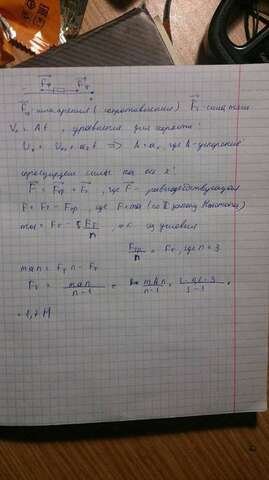 F⃗тр F⃗т
F⃗тр - сила трения (сопротивления) F⃗т - сила тяги
Vx = At , уравнение для скорости:
Ux = U0x + axt => A = ax, где A - ускорение
проецируем силы на ось x:
F⃗ = F⃗тр + F⃗т , где F - равнодействующая
F = Fт - Fтр , где F = ma (по II закону Ньютона)
ma = Fт - Fт/n , из условия
= Fт, где n = 3
man = Fт n - Fт
Fт = man/(n-1) = mAn/(n-1) =